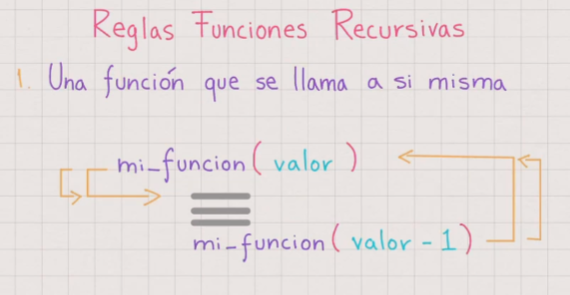 Reglas Funciones Recursivas
1. Una función que se llama a si misma
mi_funcion( valor )
mi_funcion( valor - 1 )